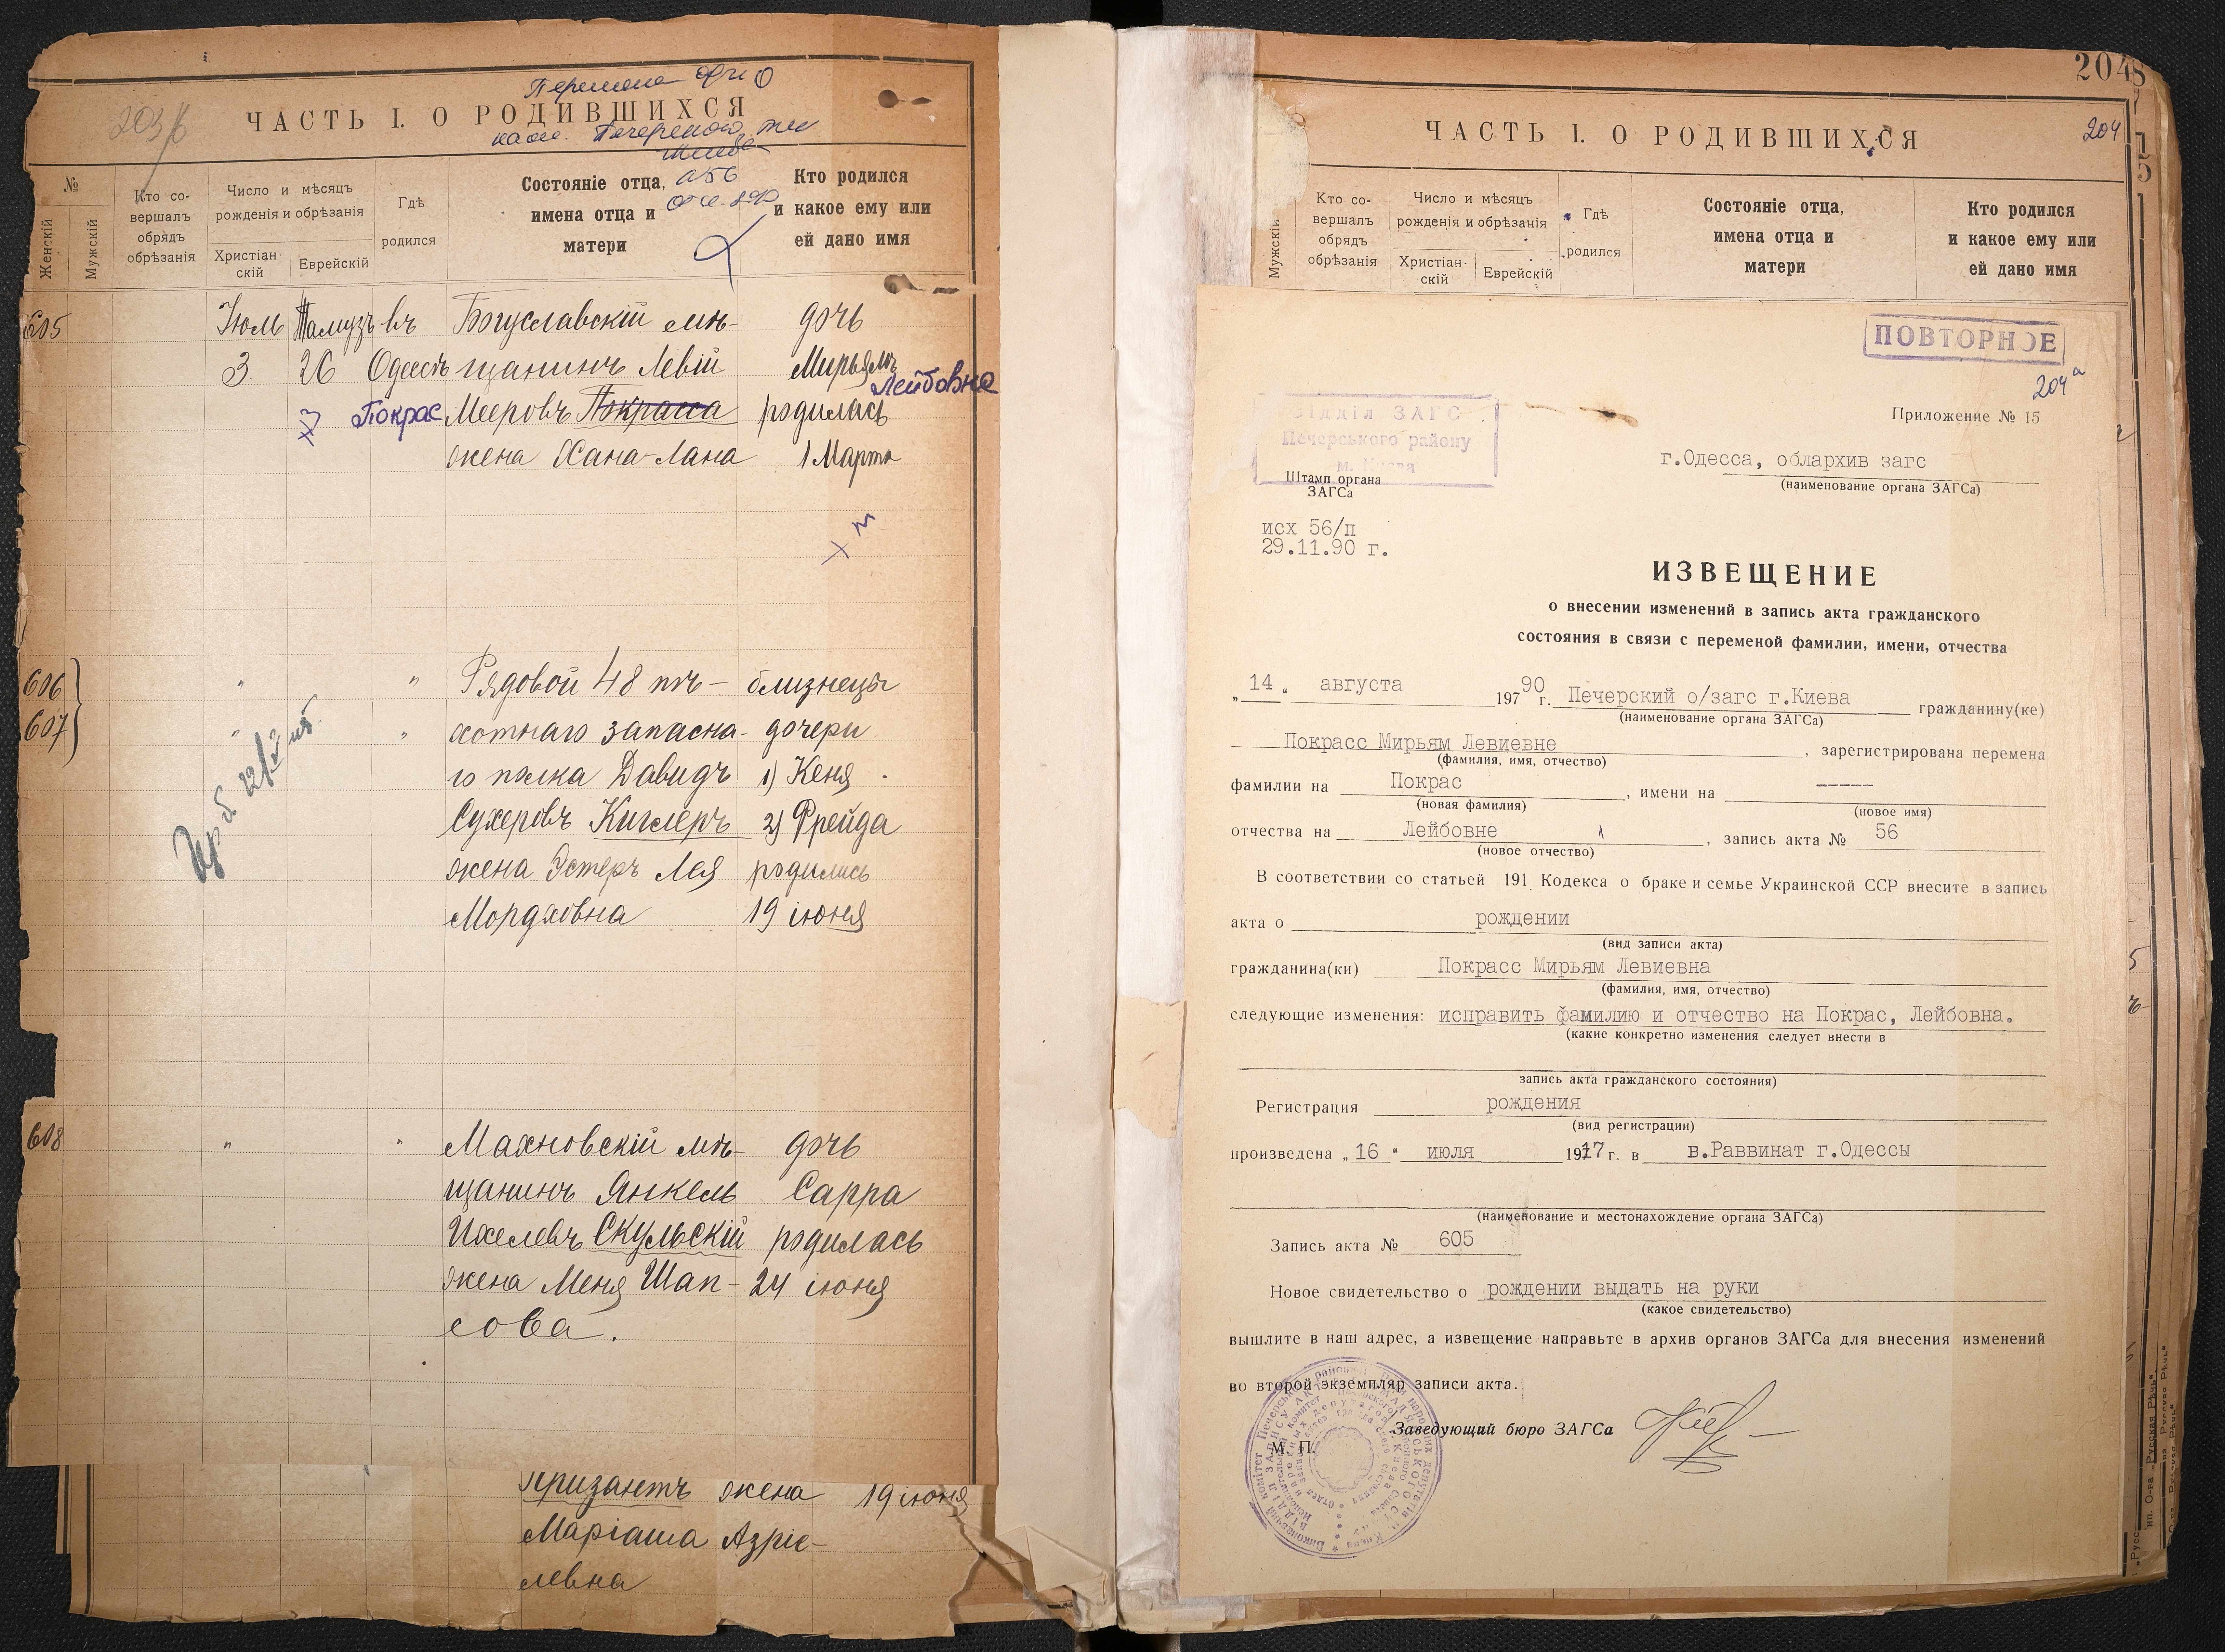 Перемена ФИО
203
ЧАСТЬ I. О РОДИВШИХСЯ
Печерского
Киева
№
Женскій
Мужскій
Кто со-
вершалъ
обрядъ
обрѣзанія
Число и мѣсяцъ
рожденія и обрѣзанія
Христіан-
скій
Еврейскій
Гдѣ
родился
Состояніе отца,
имена отца и
матери
а 56
Кто родился
и какое ему или
ей дано имя
605 Іюль Тамузъ въ Богуславскій мѣ- дочь
3 26 Одессѣ щанинъ Левій Мирьямъ
Лейбовна
Покрас Мееровъ Покрасса родилась
жена Хана-Лана 1 Марта
606 " " Рядовой 48 пѣ- близнецы
607 " " хотнаго запасна- дочери
го полка Давидъ 1) Кеня
Сухеровъ Киглеръ 2) Фрейда
жена Эстеръ Лея родились
Мордховна 19 іюня
608 " " Махновскій мѣ- дочь
щанинъ Янкель Сарра
Ихелевъ Скульскій родилась
жена Меня Шап- 24 іюня
сова.
Кризантъ жена 19 іюня
Маріаша Азріе-
левна
2048
204
ЧАСТЬ I. О РОДИВШИХСЯ
Мужскій
Кто со-
вершалъ
обрядъ
обрѣзанія
Число и мѣсяцъ
рожденія и обрѣзанія
Христіан-
скій
Еврейскій
Гдѣ
родился
Состояніе отца,
имена отца и
матери
Кто родился
и какое ему или
ей дано имя
ПОВТОРНОЕ
204 а
Приложение № 15
Відділ ЗАГС
Печерського району
м. Києва
Штамп органа
ЗАГСа
г.Одесса, облархив загс
(наименование органа ЗАГСа)
исх 56/п
29.11.90 г.
ИЗВЕЩЕНИЕ
о внесении изменений в запись акта гражданского
состояния в связи с переменой фамилии, имени, отчества
„14“ августа 197 90 г. Печерский о/загс г.Киева гражданину(ке)
(наименование органа ЗАГСа)
Покрасс Мирьям Левиевне, зарегистрирована перемена
(фамилия, имя, отчество)
фамилии на Покрас, имени на -----
(новая фамилия) (новое имя)
отчества на Лейбовне, запись акта № 56
(новое отчество)
В соответствии со статьей 191 Кодекса о браке и семье Украинской ССР внесите в запись
акта о рождении
(вид записи акта)
гражданина(ки) Покрасс Мирьям Левиевна
(фамилия, имя, отчество)
следующие изменения: исправить фамилию и отчество на Покрас, Лейбовна.
(какие конкретно изменения следует внести в
запись акта гражданского состояния)
Регистрация рождения
(вид регистрации)
произведена „16“ июля 1917 г. в в.Раввинат г.Одессы
(наименование и местонахождение органа ЗАГСа)
Запись акта № 605
Новое свидетельство о рождении выдать на руки
(какое свидетельство)
вышлите в наш адрес, а извещение направьте в архив органов ЗАГСа для внесения изменений
во второй экземпляр записи акта.
Заведующий бюро ЗАГСа
М. П.